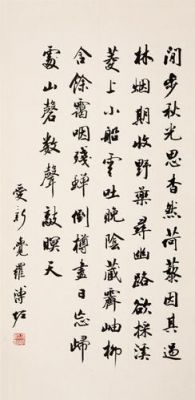 閒步秋光思杳然荷藜因共過
林烟期收野藥尋幽路欲採溪
菱上小船雲吐晚陰藏霽岫柳
含餘靄咽殘蟬倒樽盡日忘歸
處山磬數聲敲暝天
愛新覺羅溥佐